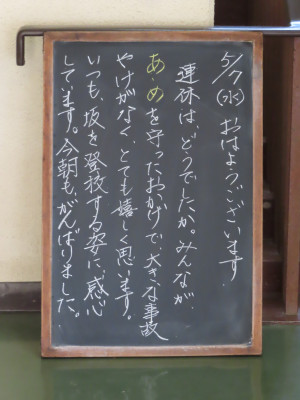 5/7(水)おはようございます
連休は、どうでしたか。みんなが
あ・めを守ったおかげで、大きな事故
やけがなく、とても嬉しく思います。
いつも、坂を登校する姿に、感心
しています。今朝も、がんばりました。